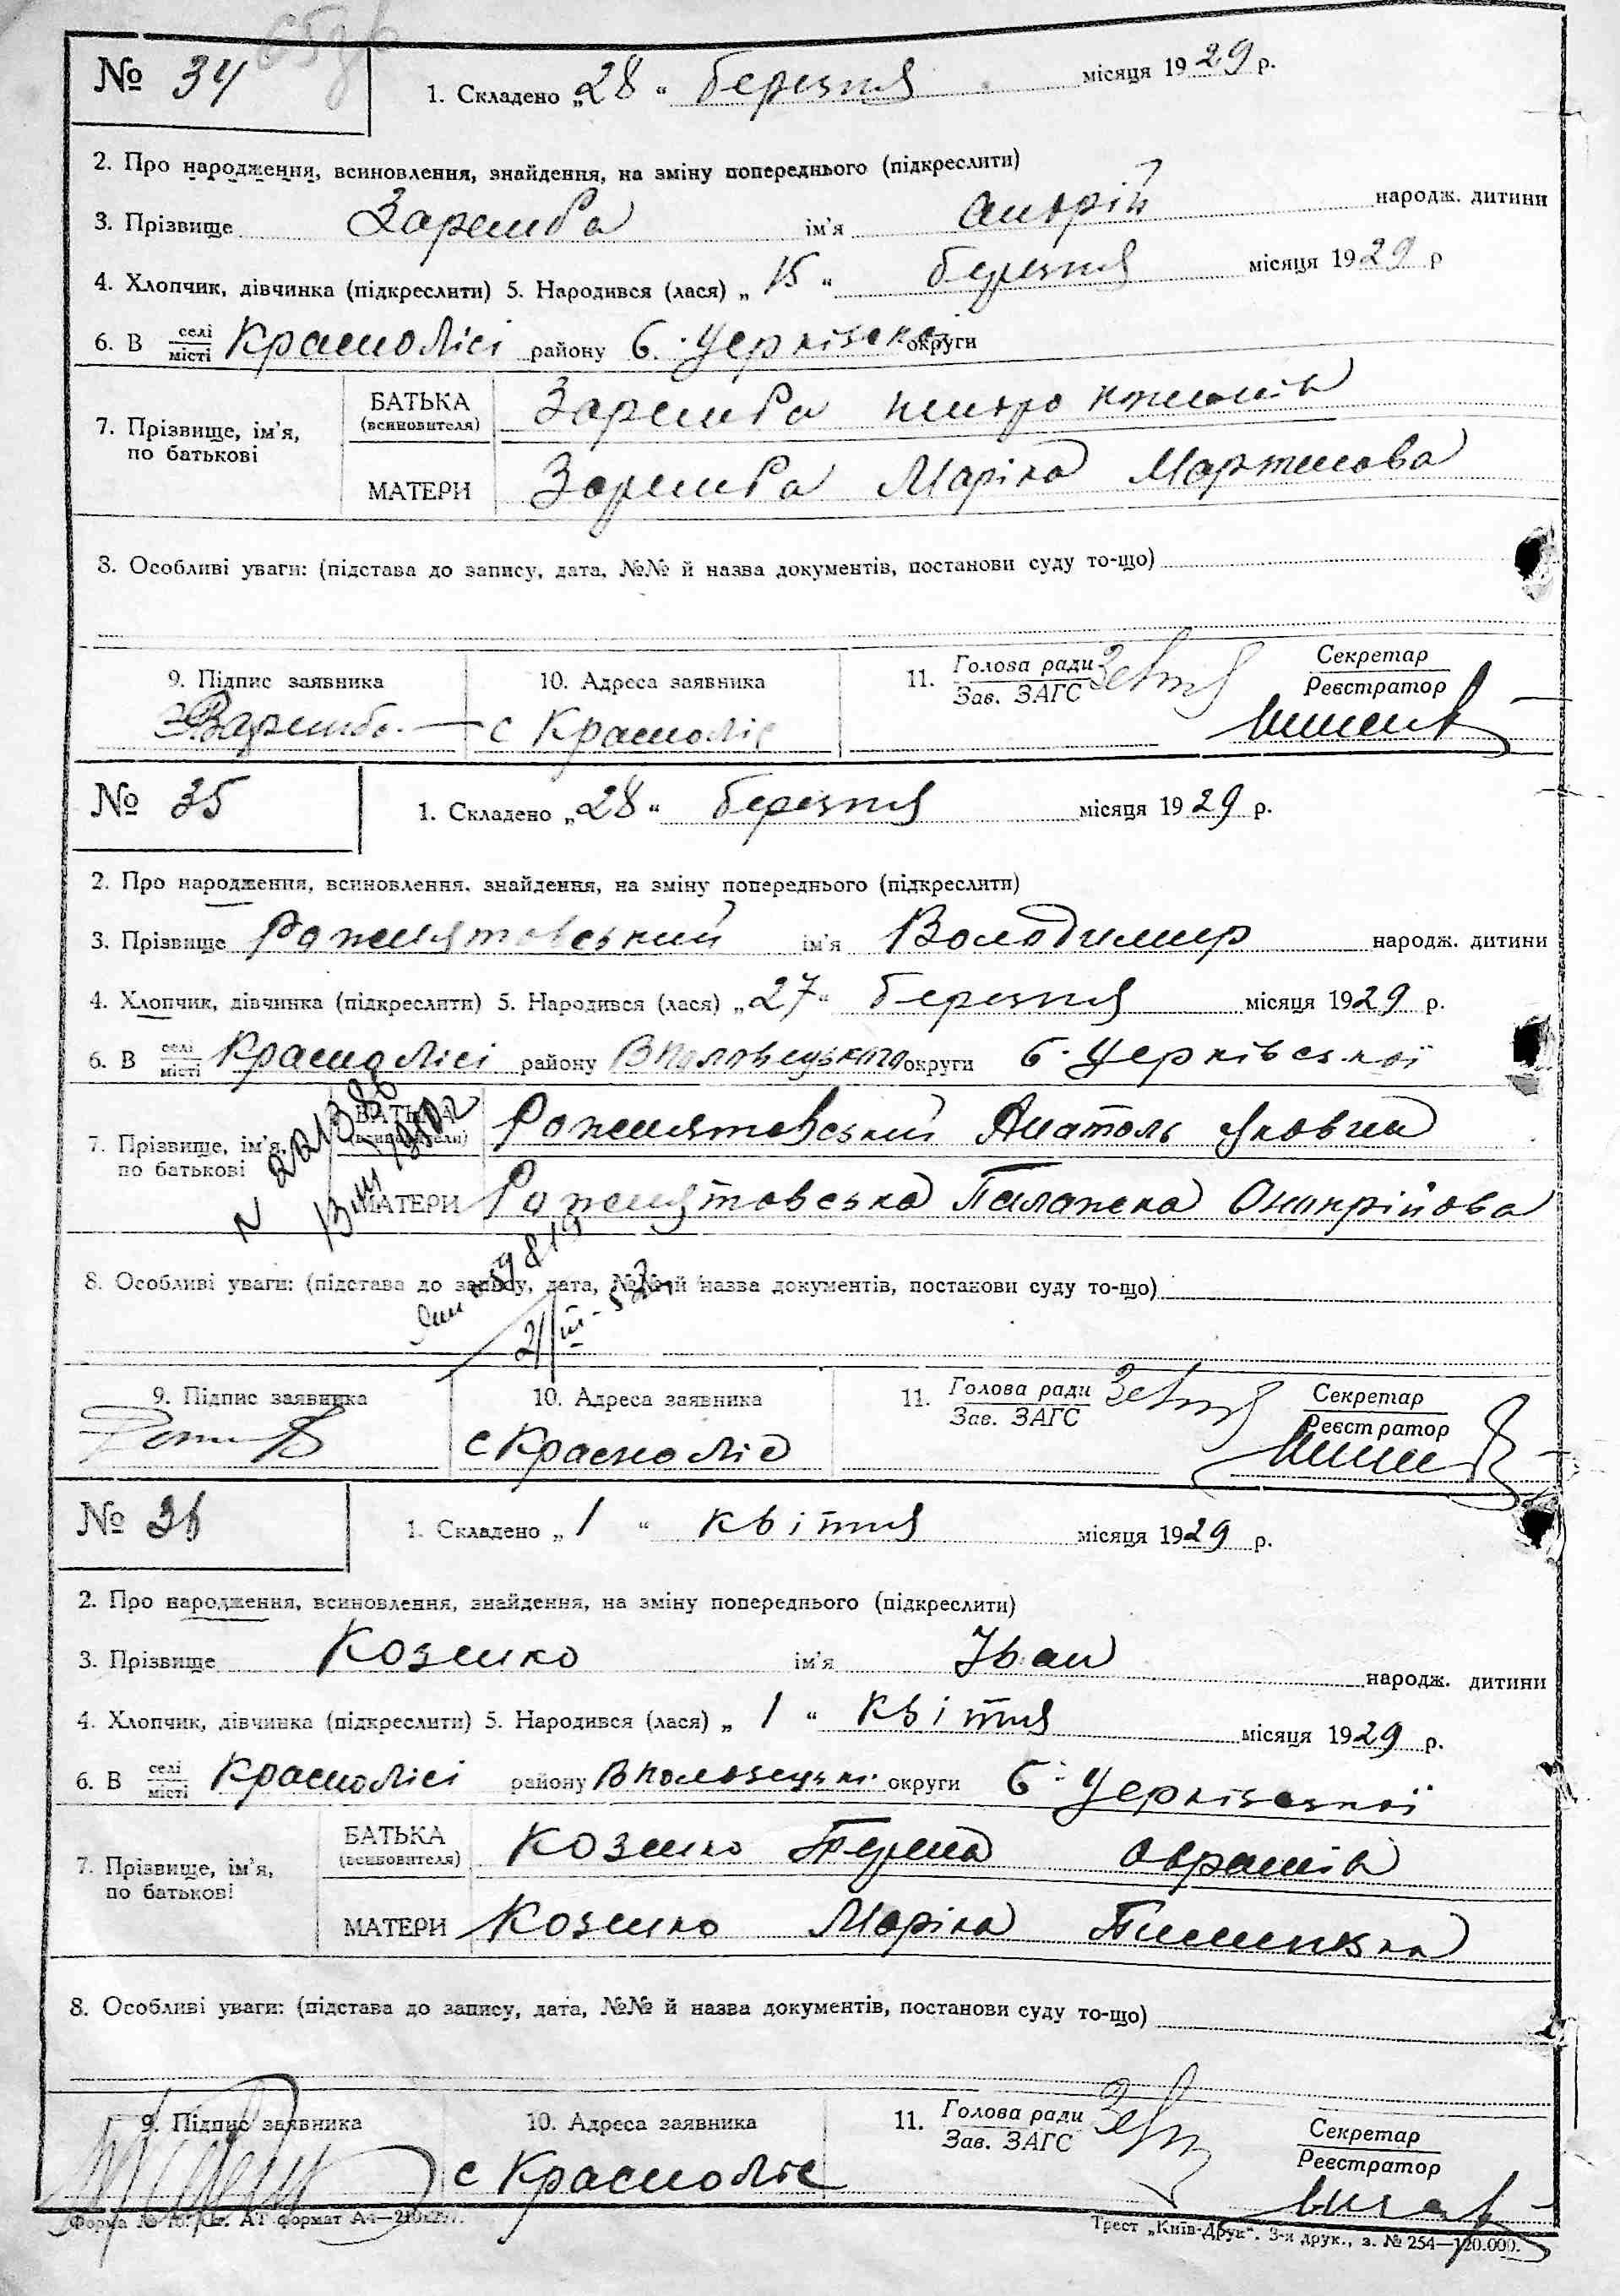 № 34
1. Складено „28“ березня місяця 1929 р.
2. Про народження, всиновлення, знайдення, на зміну попереднього (підкреслити)
3. Прізвище Заремба ім'я Андрій народж. дитини
4. Хлопчик, дівчинка (підкреслити) 5. Народився (лася) „15“ березня місяця 1929 р
6. В селі Краснолісі району Б. Церківської округи
місті
БАТЬКА Заремба
7. Прізвище, ім'я, (всиновителя)
по батькові
МАТЕРИ Заремба Маріка Мартинова
8. Особливі уваги: (підстава до запису, дата, №№ й назва документів, постанови суду то-що)
9. Підпис заявника 10. Адреса заявника 11. Голова ради Секретар
Зав. ЗАГС Реєстратор
с Красноліс
№ 35
1. Складено „28“ березня місяця 1929 р.
2. Про народження, всиновлення, знайдення, на зміну попереднього (підкреслити)
3. Прізвище Рожнятовський ім'я Володимир народж. дитини
4. Хлопчик, дівчинка (підкреслити) 5. Народився (лася) „27“ березня місяця 1929 р.
6. В селі Краснолісі району Вполовецького округи Б. Церківської
місті
БАТЬКА Рожнятовський Анатоль Якович
7. Прізвище, ім'я, (всиновителя)
по батькові
МАТЕРИ Рожнятовська Палажка Онопрійова
8. Особливі уваги: (підстава до запису, дата, №№ й назва документів, постанови суду то-що)
9. Підпис заявника 10. Адреса заявника 11. Голова ради Секретар
Зав. ЗАГС Реєстратор
с Красноліс
№ 36
1. Складено „1“ квітня місяця 1929 р.
2. Про народження, всиновлення, знайдення, на зміну попереднього (підкреслити)
3. Прізвище Козенко ім'я Іван народж. дитини
4. Хлопчик, дівчинка (підкреслити) 5. Народився (лася) „1“ квітня місяця 1929 р.
6. В селі Краснолісі району Вполовецькі округи Б. Церківської
місті
БАТЬКА Козенко
7. Прізвище, ім'я, (всиновителя)
по батькові
МАТЕРИ Козенко Маріка
8. Особливі уваги: (підстава до запису, дата, №№ й назва документів, постанови суду то-що)
9. Підпис заявника 10. Адреса заявника 11. Голова ради Секретар
Зав. ЗАГС Реєстратор
с Красноліс
Трест „Київ-Друк“. 3-я друк., з. № 254—120.000.